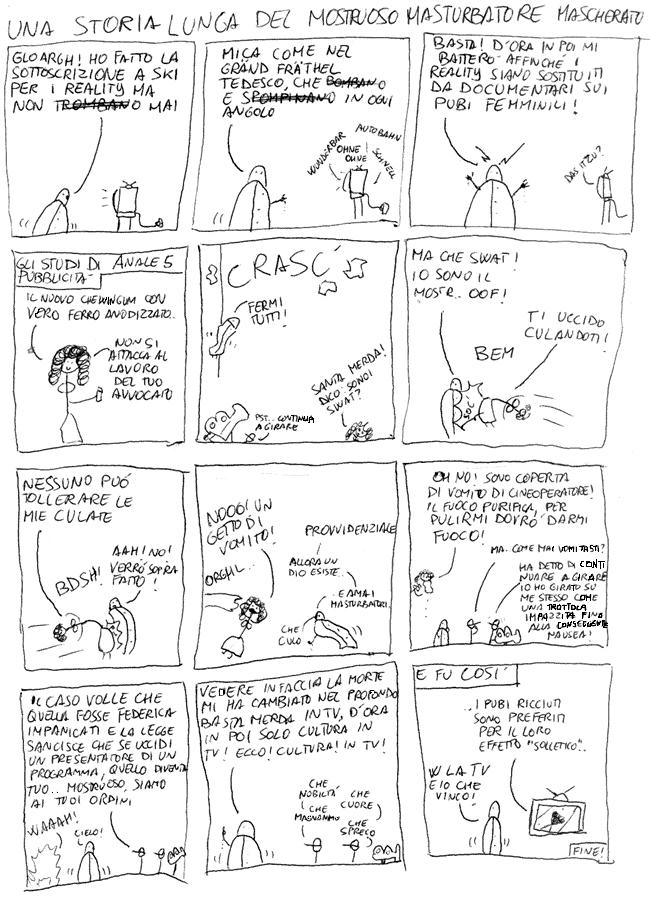 UNA STORIA LUNGA DEL MOSTRUOSO MASTURBATORE MASCHERATO
GLOARGH! HO FATTO LA
SOTTOSCRIZIONE A SKI
PER I REALITY MA
NON TROMBANO MAI
MICA COME NEL
GRÄND FRÄTHEL
TEDESCO, CHE BOMBANO
E SPOMPINANO IN OGNI
ANGOLO
WUNDERBAR
OHNE
OHNE
AUTOBAHN
SCHNELL
BASTA! D'ORA IN POI MI
BATTERO' AFFINCHÉ I
REALITY SIANO SOSTITUITI
DA DOCUMENTARI SUI
PUBI FEMMINILI!
DAS ITZU?
GLI STUDI DI ANALE 5
PUBBLICITA'
IL NUOVO CHEWINGUM CON
VERO FERRO ANODIZZATO..
NON SI
ATTACCA AL
LAVORO
DEL TUO
AVVOCATO
CRASC'
FERMI
TUTTI!
SANTA MERDA!
DICO SONO I
SWAT?
PST.. CONTINUA
A GIRARE
MA CHE SWAT!
IO SONO IL
MOSTR.. OOF!
TI UCCIDO
CULANDOTI!
BEM
SOC!
NESSUNO PUÓ
TOLLERARE LE
MIE CULATE
AAH! NO!
VERRÓ SOPRA
FATTO!
BDSH!
NOOO! UN
GETTO DI
VOMITO!
ORGHL..
PROVVIDENZIALE
ALLORA UN
DIO ESISTE..
E AMA I
MASTURBATORI..
CHE
CULO
OH NO! SONO COPERTA
DI VOMITO DI CINEOPERATORE!
IL FUOCO PURIFICA, PER
PULIRMI DOVRO' DARMI
FUOCO!
MA.. COME MAI VOMITASTI?
HA DETTO DI CONTI
NUARE A GIRARE
IO HO GIRATO SU
ME STESSO COME
UNA TROTTOLA
IMPAZZITA FINO
ALLA CONSEGUENTE
NAUSEA!
IL CASO VOLLE CHE
QUELLA FOSSE FEDERICA
IMPANICATI E LA LEGGE
SANCISCE CHE SE UCCIDI
UN PRESENTATORE DI UN
PROGRAMMA, QUELLO DIVENTA
TUO.. MOSTRUOSO, SIAMO
AI TUOI ORDINI
WAAAH!
CIELO!
VEDERE IN FACCIA LA MORTE
MI HA CAMBIATO NEL PROFONDO
BASTA MERDA IN TV, D'ORA
IN POI SOLO CULTURA IN
TV! ECCO! CULTURA! IN TV!
CHE
NOBILTÀ
CHE
MAGNANIMO
CHE
CUORE
CHE
SPRECO
E FU COSI'
..I PUBI RICCIUTI
SONO PREFERITI
PER IL LORO
EFFETTO "SOLLETICO"..
W LA TV
E IO CHE
VINCO!
FINE!